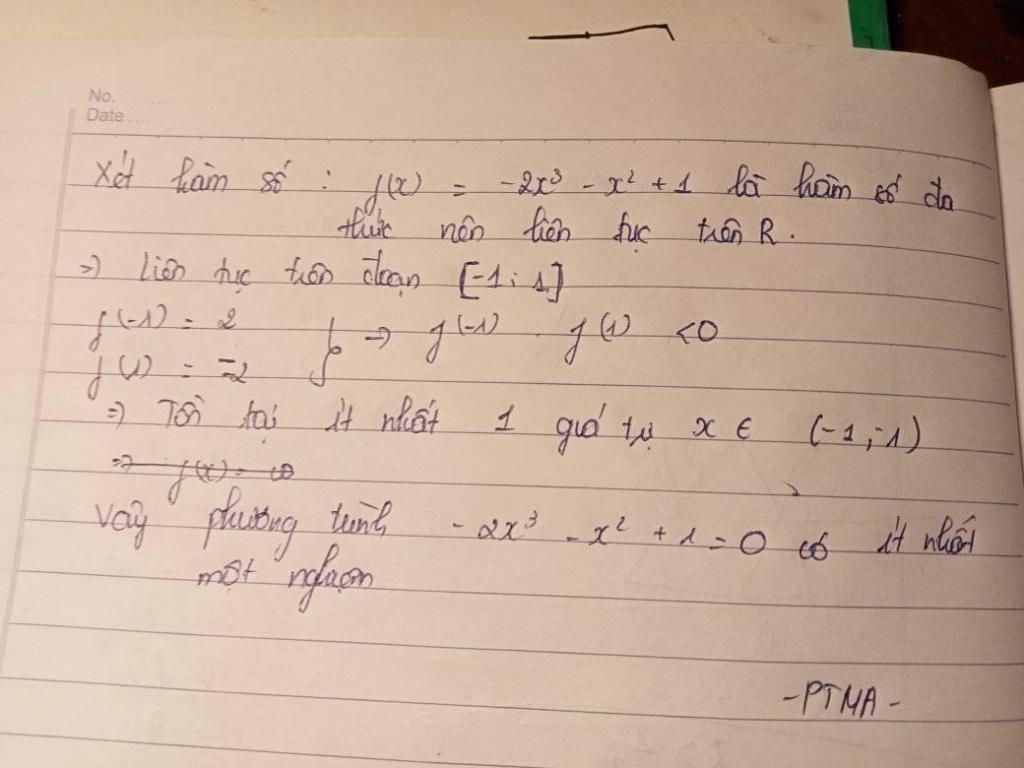 No.
Date
Xét hàm số : f(x) = -2x³ - x² + 1 là hàm số đa
thức nên liên tục trên R.
=> Liên tục trên đoạn [-1; 1]
f(-1) = 2 } => f(-1) . f(1) < 0
f(1) = -2
=> Tồn tại ít nhất 1 giá trị x ∈ (-1; 1)
=> f(x) = 0
Vậy phương trình -2x³ - x² + 1 = 0 có ít nhất
một nghiệm
-PTMA-